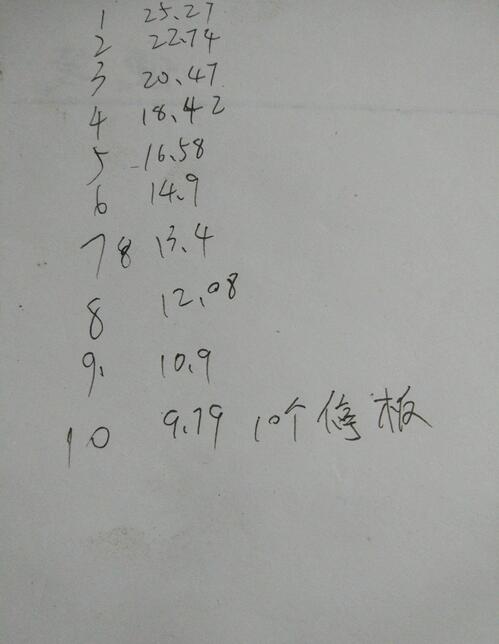 1 25.27
2 22.74
3 20.47
4 18.42
5 16.58
6 14.9
78 13.4
8 12.08
9. 10.9
10 9.79 10个停板